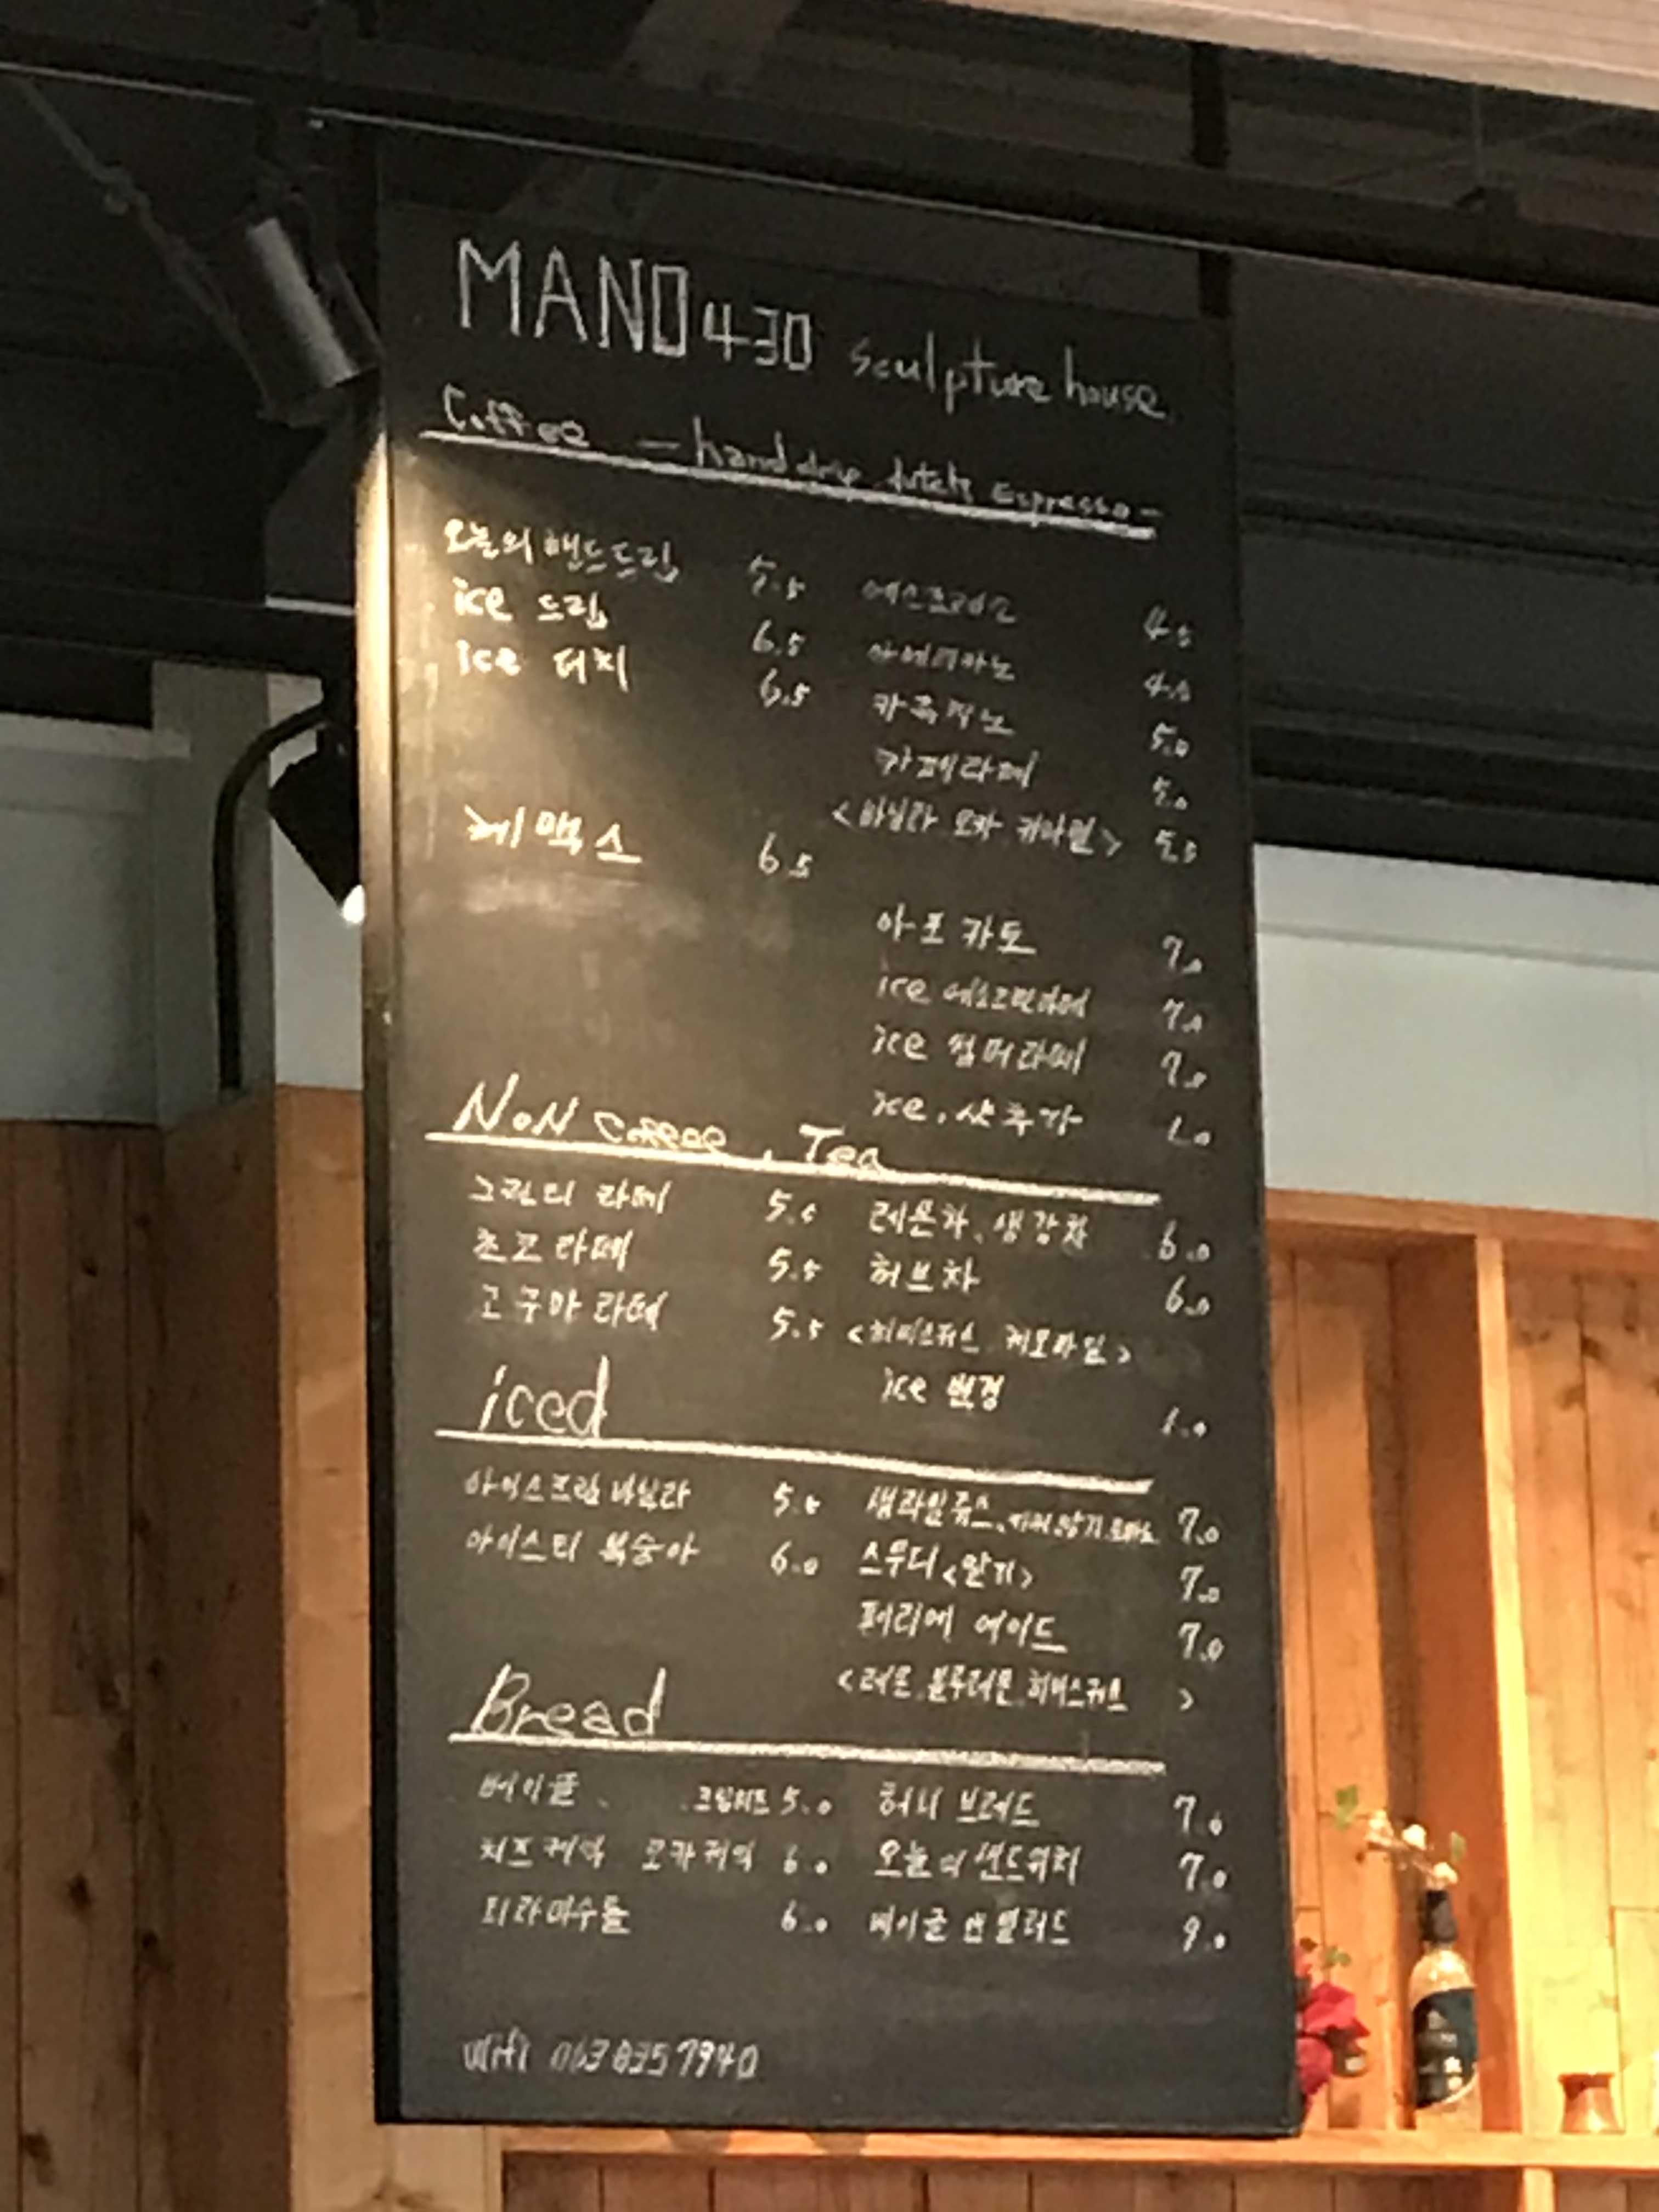 MANO430 sculpture house
Coffee - hand drip dutch Espresso -
오늘의 핸드드립 5.5 에스프레소 4.5
ice 드립 6.5 아메리카노 4.5
ice 더치 6.5 카푸치노 5.0
카페라떼 5.0
<바닐라 모카 카라멜> 5.5
케맥스 6.5
아포카토 7.0
ice 7.0
ice 썸머라떼 7.0
ice, 샷추가 1.0
NoN Coffee, Tea
그린티 라떼 레몬차, 생강차 6.0
초코라떼 5.5 허브차 6.0
고구마라떼 5.5 <히비스커스 케모마일>
ice 변경 1.0
iced
아이스크림 바닐라 생과일쥬스, 7.0
아이스티 복숭아 6.0 스무디<딸기> 7.0
페리에 에이드 7.0
<레몬 블루레몬 히비스커스 >
Bread
베이글, 크림치즈 5.0 허니 브레드 7.0
치즈케익 모카케익 6.0 오늘의 샌드위치 7.0
티라미수 6.0 베이글 앤 샐러드 9.0
wifi 063 835 7940